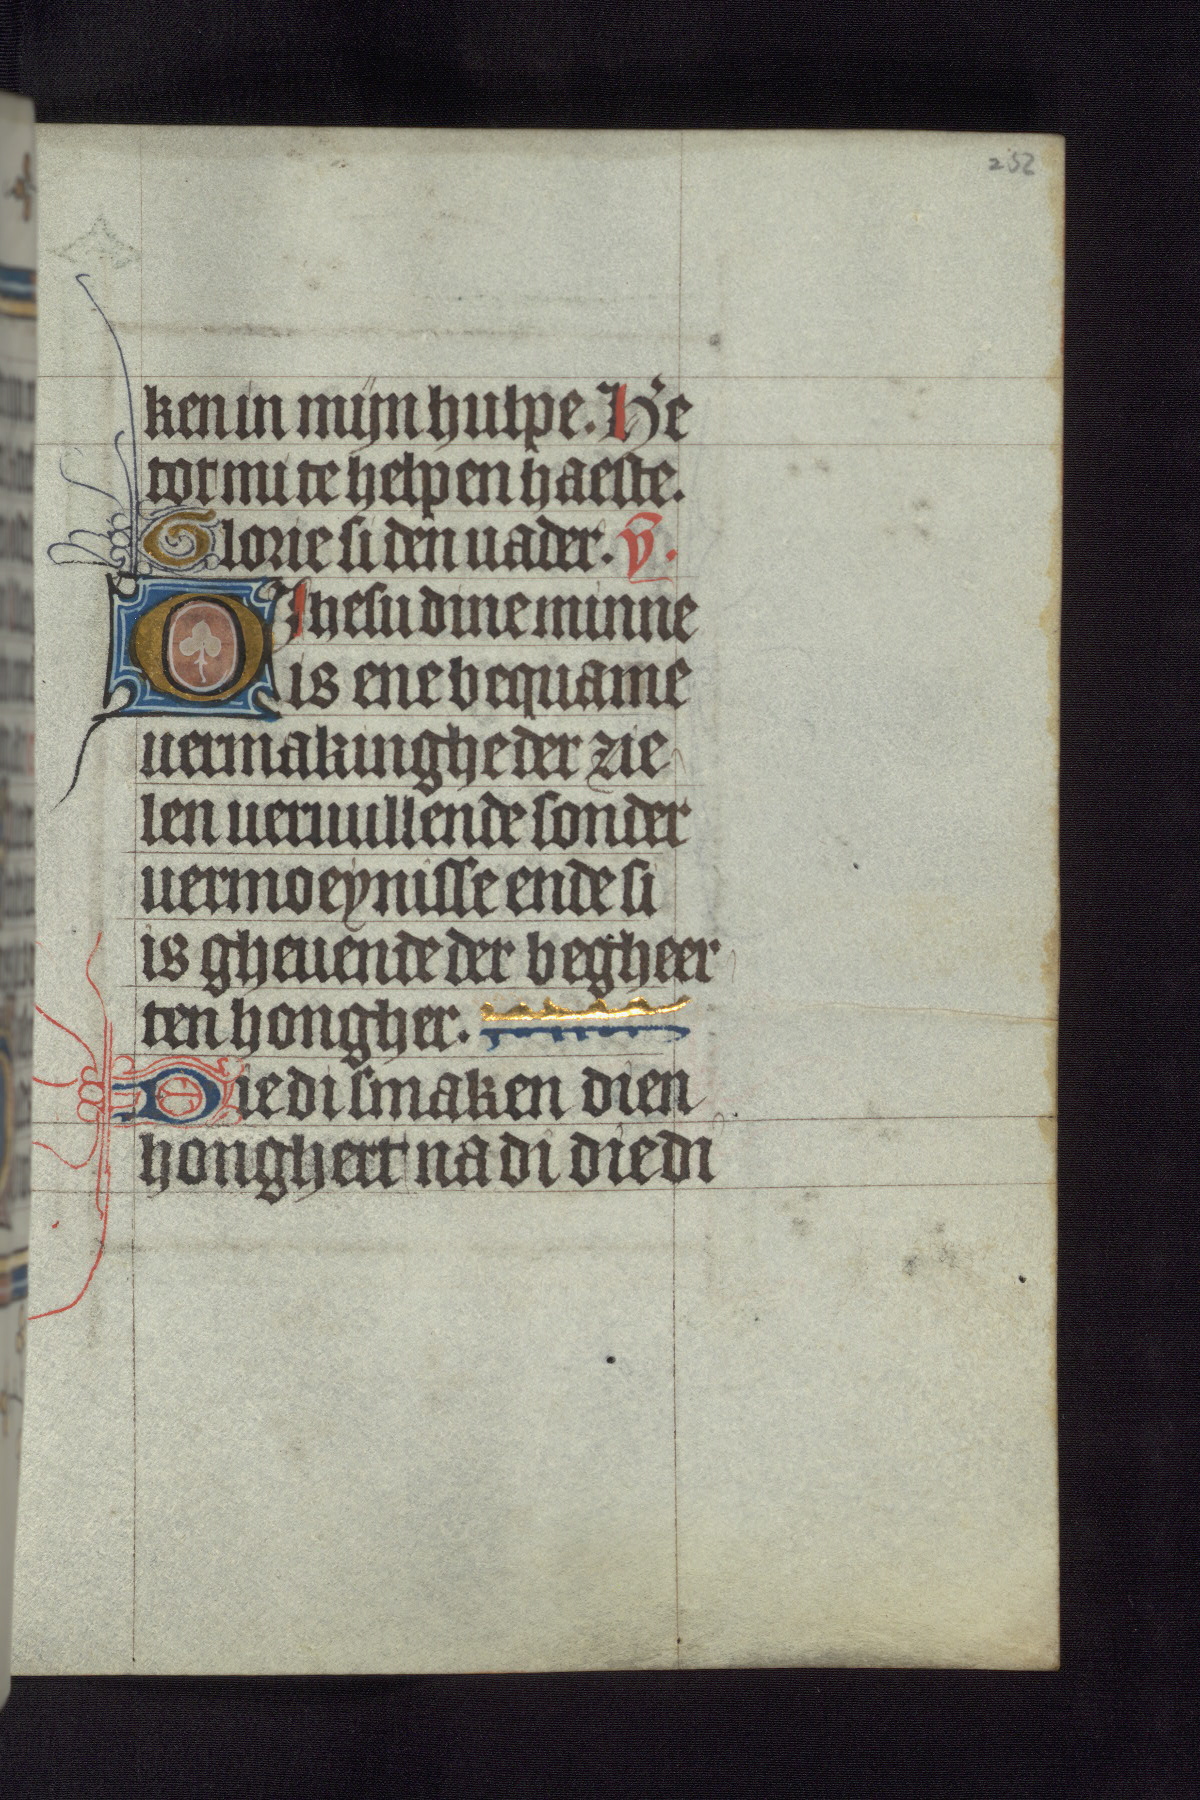 252
ken in mijn hulpe. He
tot mi te helpen haeste.
Glorie si den uader. v.
O Ihesu dine minne
is ene bequame
uermakinghe der zie
len ueruullende sonder
uermoeynisse ende si
is gheuende der begheer
ten hongher.
Die di smaken dien
honghert na di die di